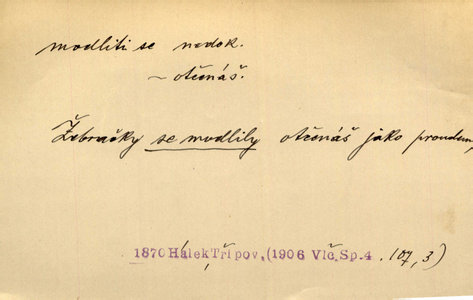 modliti se nedok.
~ otčenáš.
Žebračky se modlily otčenáš jako proudem,
1870 Hálek Tři pov. (1906 Vlč. Sp. 4. 107, 3)